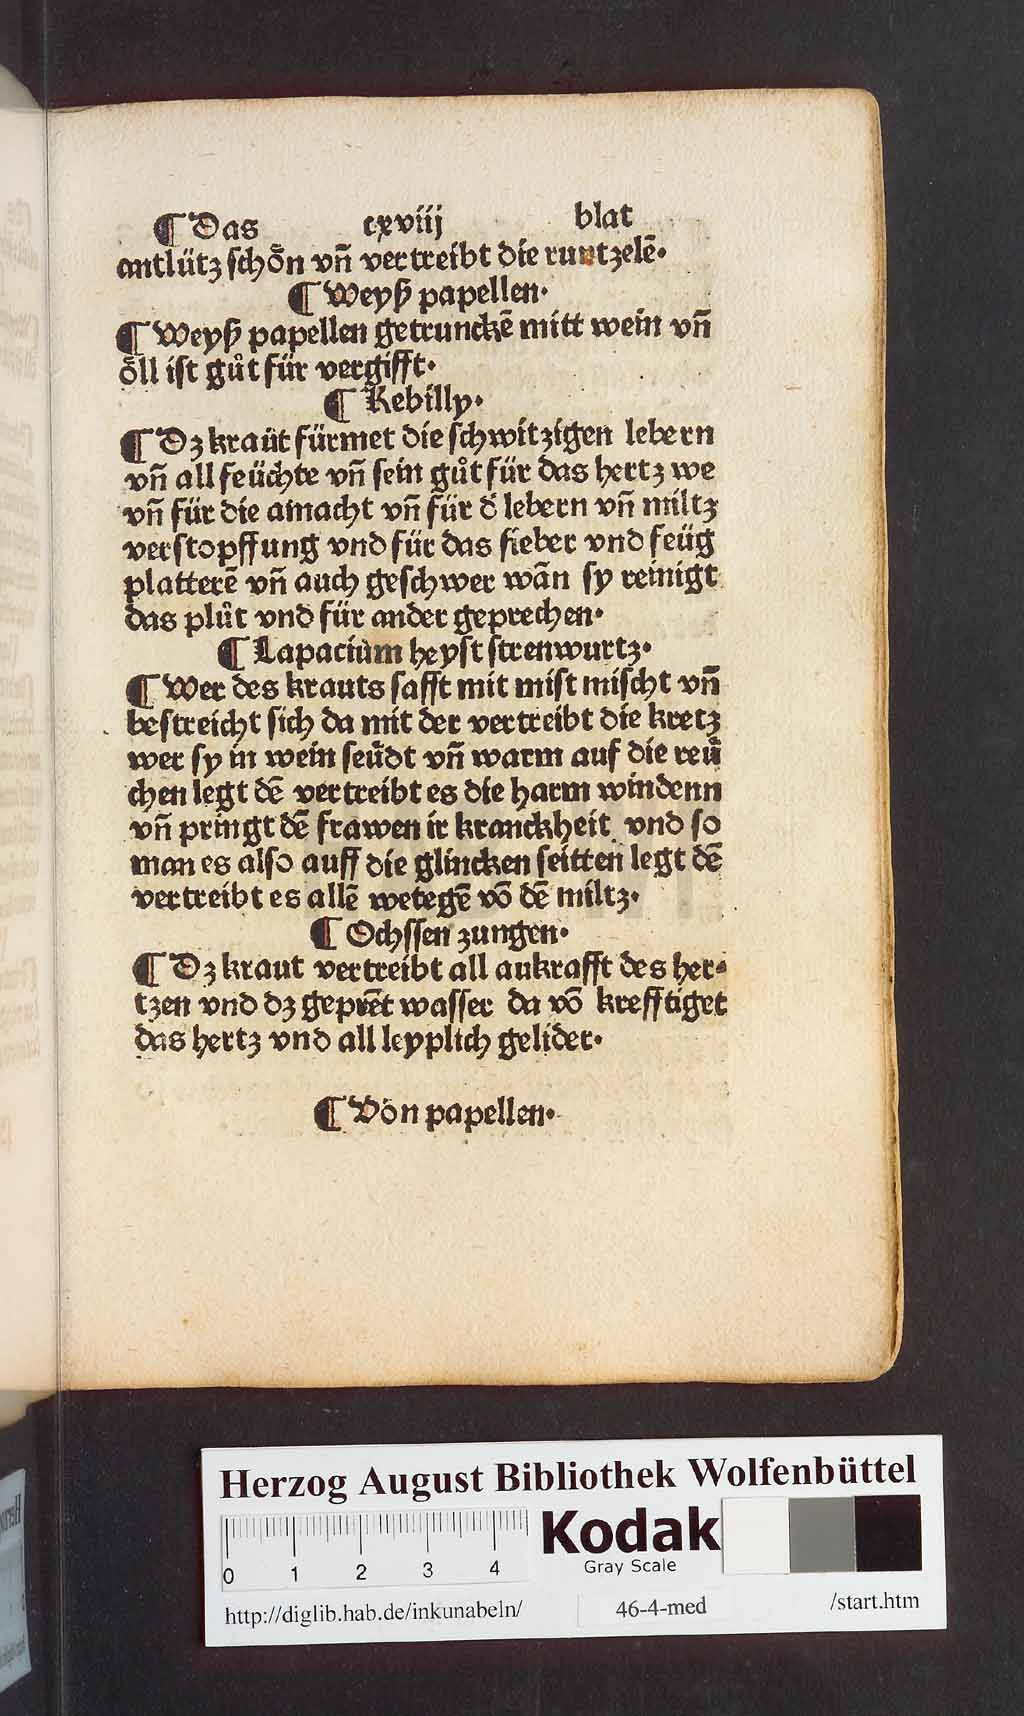 ¶ Das cxviij blat
antlütz schoͤn vñ vertreibt die runtzelē.
¶ Weyß papellen.
¶ Weyß papellen getrunckē mitt wein vñ
oͤll ist guͦt für vergifft.
¶ Rebilly.
¶ Dz kraüt fürmet die schwitzigen lebern
vñ all feüchte vñ sein guͦt für das hertz we
vñ für die amacht vñ für d̄ lebern vñ miltz
verstopffung vnd für das fieber vnd feüg
platterē vñ auch geschwer wān sy reinigt
das pluͦt vnd für ander geprechen.
¶ Lapacium heyst strenwurtz.
¶ Wer des krauts safft mit mist mischt vñ
bestreicht sich da mit der vertreibt die kretz
wer sy in wein seuͤdt vñ warm auf die reuͤ
chen legt dē vertreibt es die harm windenn
vñ pringt dē frawen ir kranckheit vnd so
man es also auff die glincken seitten legt dē
vertreibt es allē wetegē vō dē miltz.
¶ Ochssen zungen.
¶ Dz kraut vertreibt all aukrafft des her⸗
tzen vnd dz geprēt wasser da vō krefftiget
das hertz vnd all leyplich gelider.
¶ Von papellen.
Herzog August Bibliothek Wolfenbüttel
0 1 2 3 4
Kodak
Gray Scale
http://diglib.hab.de/inkunabeln/ 46-4-med /start.htm